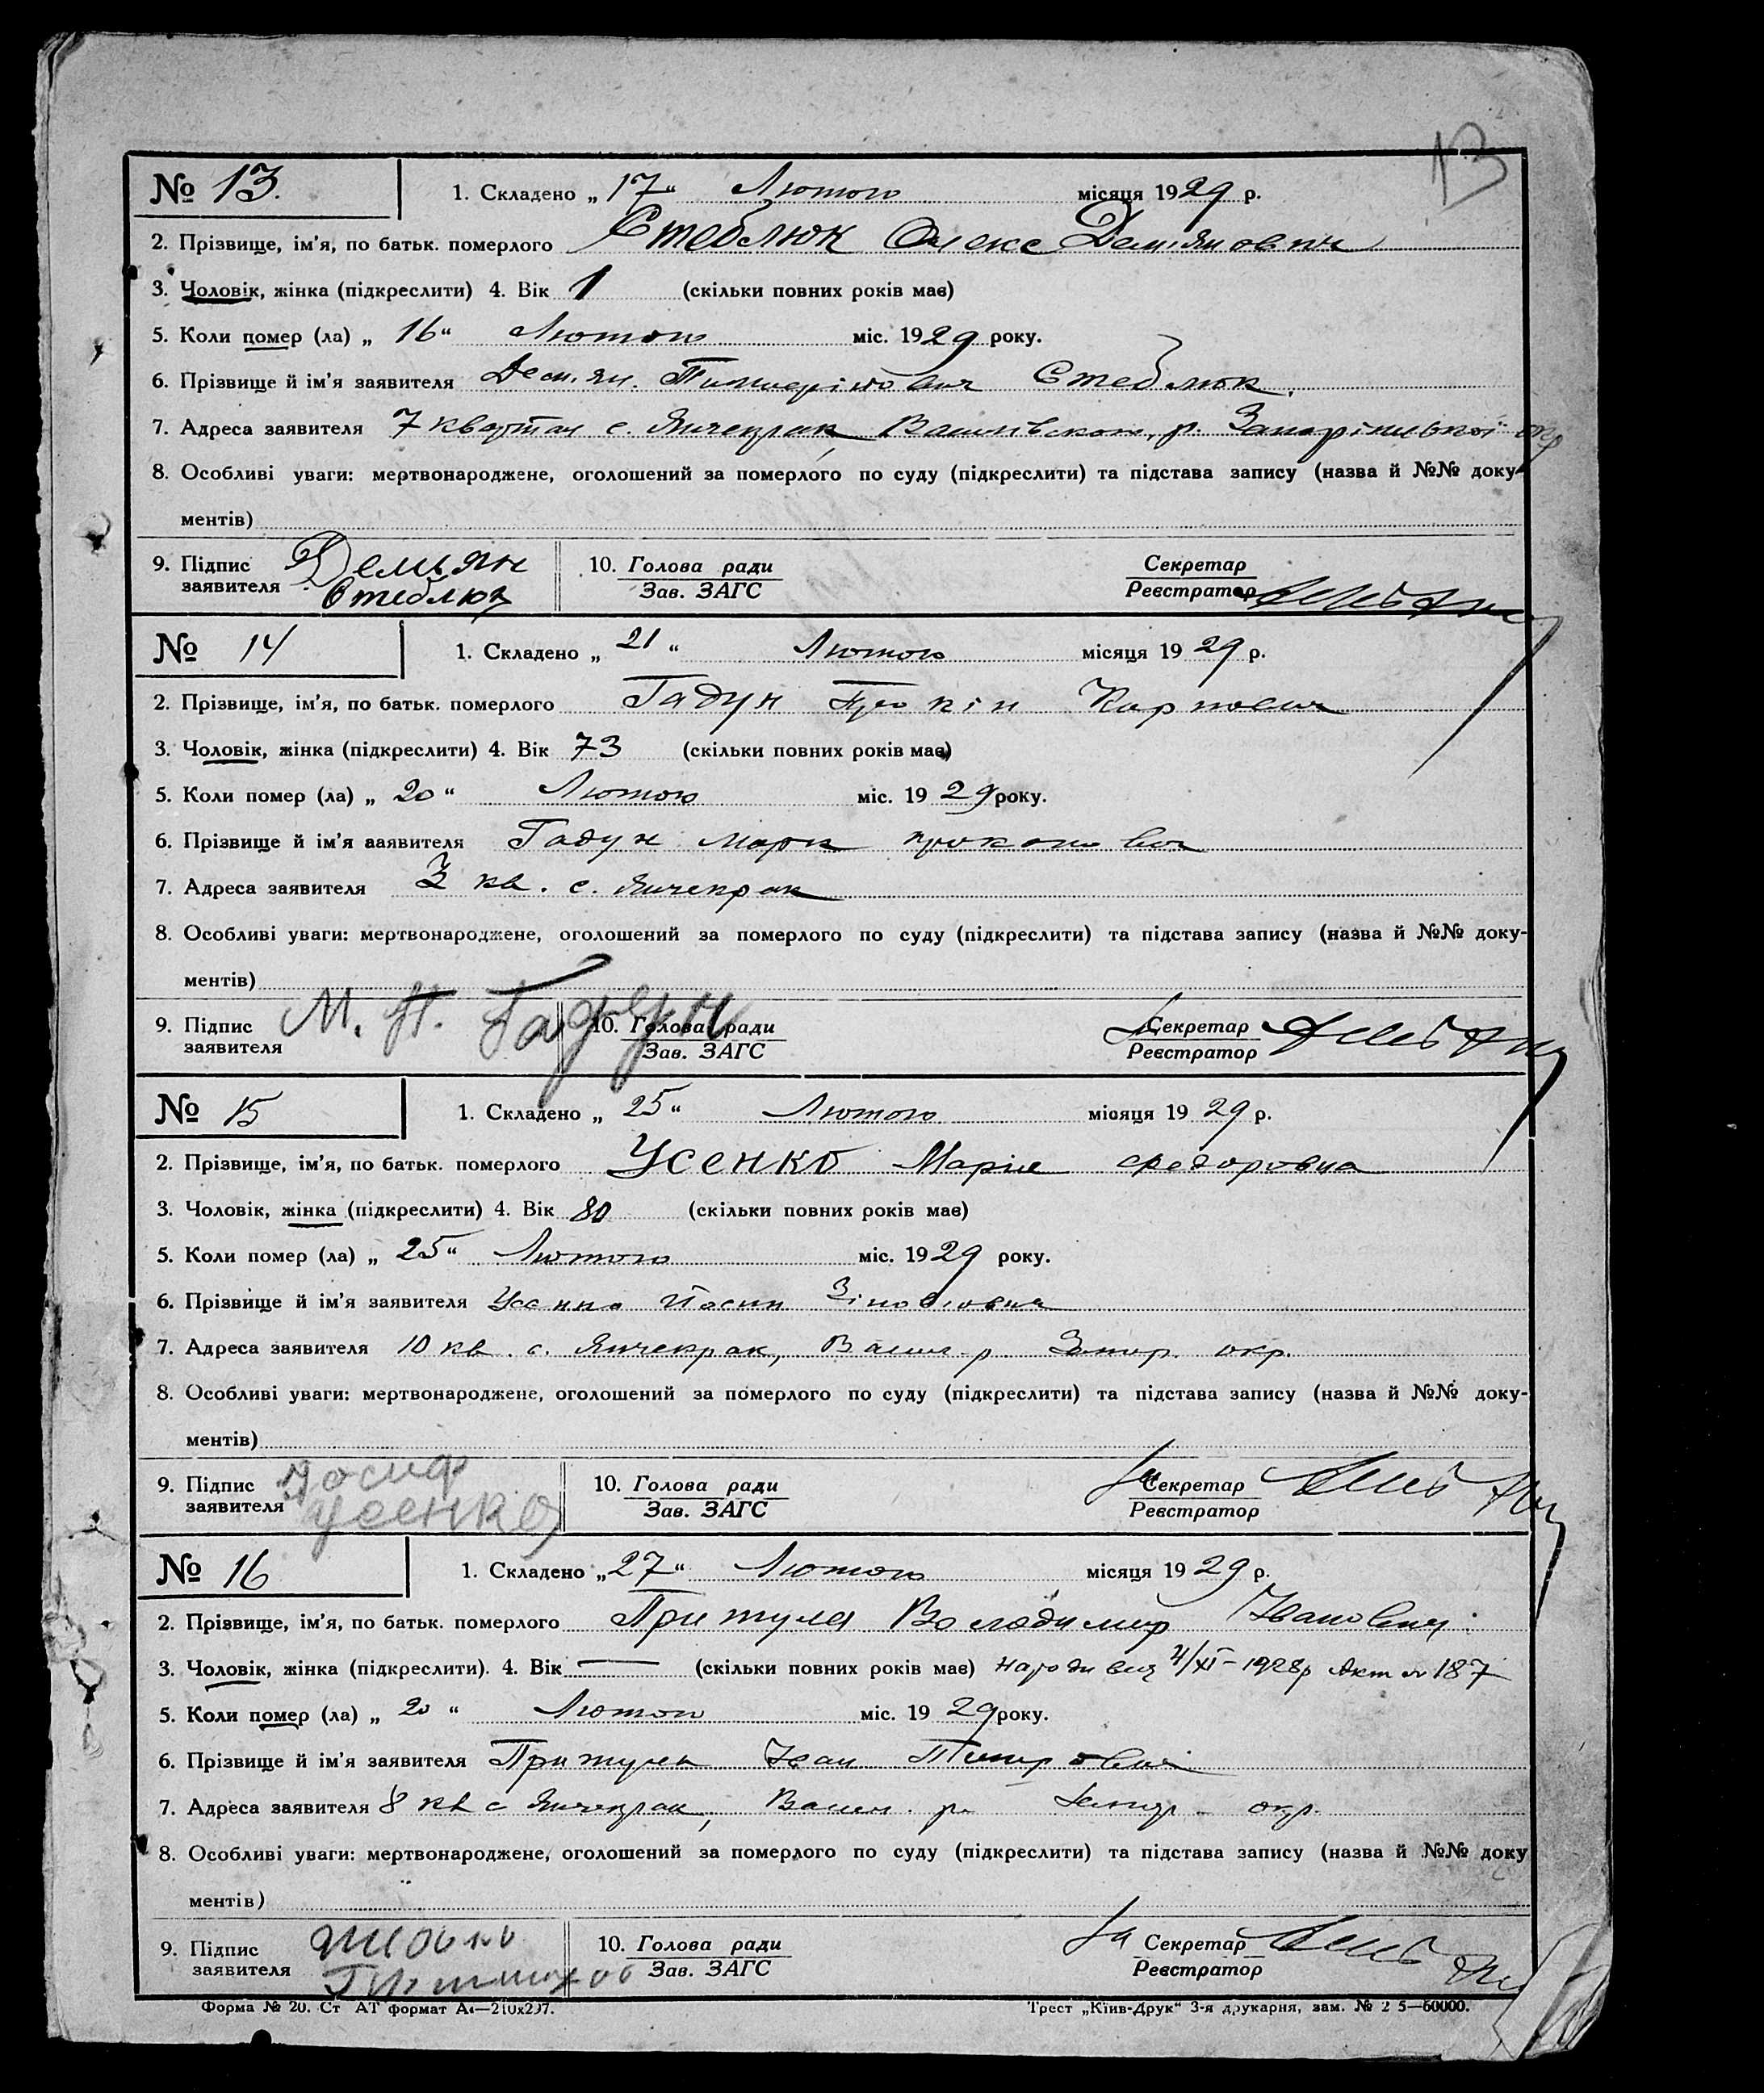 13
№ 13. 1. Складено „ 17 “ Лютого місяця 1929 р.
2. Прізвище, ім'я, по батьк. померлого Стеблюк Олекс Дем'янович
3. Чоловік, жінка (підкреслити) 4. Вік 1 (скільки повних років має)
5. Коли помер (ла) „ 16 “ Лютого міс. 1929 року.
6. Прізвище й ім'я заявителя Дем'ян Стеблюк.
7. Адреса заявителя 7 квартал с. Янчекрак, Василівского р. Запоріжської окр
8. Особливі уваги: мертвонароджене, оголошений за померлого по суду (підкреслити) та підстава запису (назва й №№ доку-
ментів)
9. Підпис заявителя Демьян Стеблюк 10. Голова ради Зав. ЗАГС Секретар Реєстратор
№ 14 1. Складено „ 21 “ Лютого місяця 1929 р.
2. Прізвище, ім'я, по батьк. померлого Гадун Прокіп Карпович
3. Чоловік, жінка (підкреслити) 4. Вік 73 (скільки повних років має)
5. Коли помер (ла) „ 20 “ Лютого міс. 1929 року.
6. Прізвище й ім'я заявителя Гадун Марк Прокопович
7. Адреса заявителя 3 кв. с. Янчекрак
8. Особливі уваги: мертвонароджене, оголошений за померлого по суду (підкреслити) та підстава запису (назва й №№ доку-
ментів)
9. Підпис заявителя М. П. Гадун 10. Голова ради Зав. ЗАГС Секретар Реєстратор
№ 15 1. Складено „ 25 “ Лютого місяця 1929 р.
2. Прізвище, ім'я, по батьк. померлого Усенко Марія Федоровна
3. Чоловік, жінка (підкреслити) 4. Вік 80 (скільки повних років має)
5. Коли помер (ла) „ 25 “ Лютого міс. 1929 року.
6. Прізвище й ім'я заявителя Усенко Йосип Зіновієвич
7. Адреса заявителя 10 кв. с. Янчекрак, Васил. р. Запор. окр.
8. Особливі уваги: мертвонароджене, оголошений за померлого по суду (підкреслити) та підстава запису (назва й №№ доку-
ментів)
9. Підпис заявителя Йосиф Усенко 10. Голова ради Зав. ЗАГС Секретар Реєстратор
№ 16 1. Складено „ 27 “ Лютого місяця 1929 р.
2. Прізвище, ім'я, по батьк. померлого Притула Володимир Іванович
3. Чоловік, жінка (підкреслити). 4. Вік — (скільки повних років має) народився 4/XI-1928р Акт № 187
5. Коли помер (ла) „ 20 “ Лютого міс. 1929 року.
6. Прізвище й ім'я заявителя Притула Іван
7. Адреса заявителя 8 кв с Янчекрак, Васил. р. Запор. окр.
8. Особливі уваги: мертвонароджене, оголошений за померлого по суду (підкреслити) та підстава запису (назва й №№ доку
ментів)
9. Підпис заявителя 10. Голова ради Зав. ЗАГС Секретар Реєстратор
Форма № 20. Ст АТ формат А4—210x297. Трест „Київ-Друк“ 3-я друкарня, зам. № 2 5—60000.